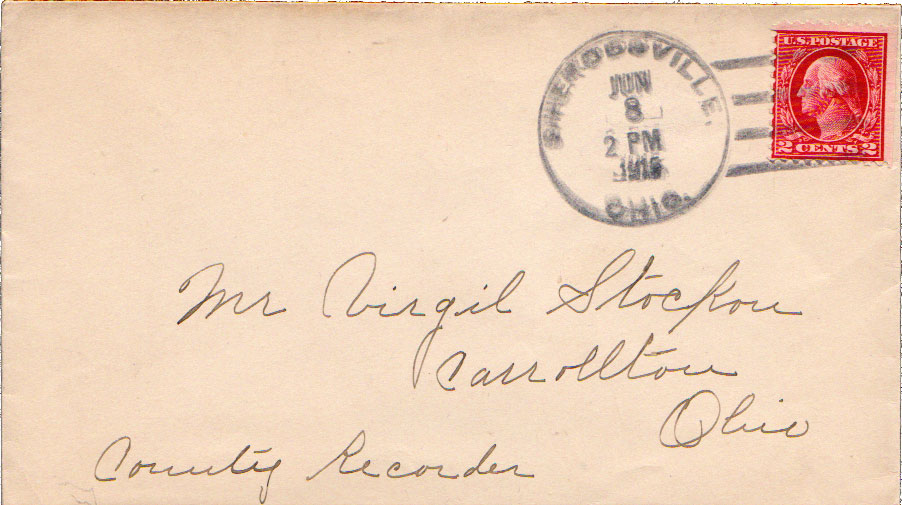 SHERODSVILLE,
JUN
8
2 PM
1915
OHIO.
U.S. POSTAGE
2 CENTS 2
Mr Virgil Stockon
Carrollton
Ohio
County Recorder